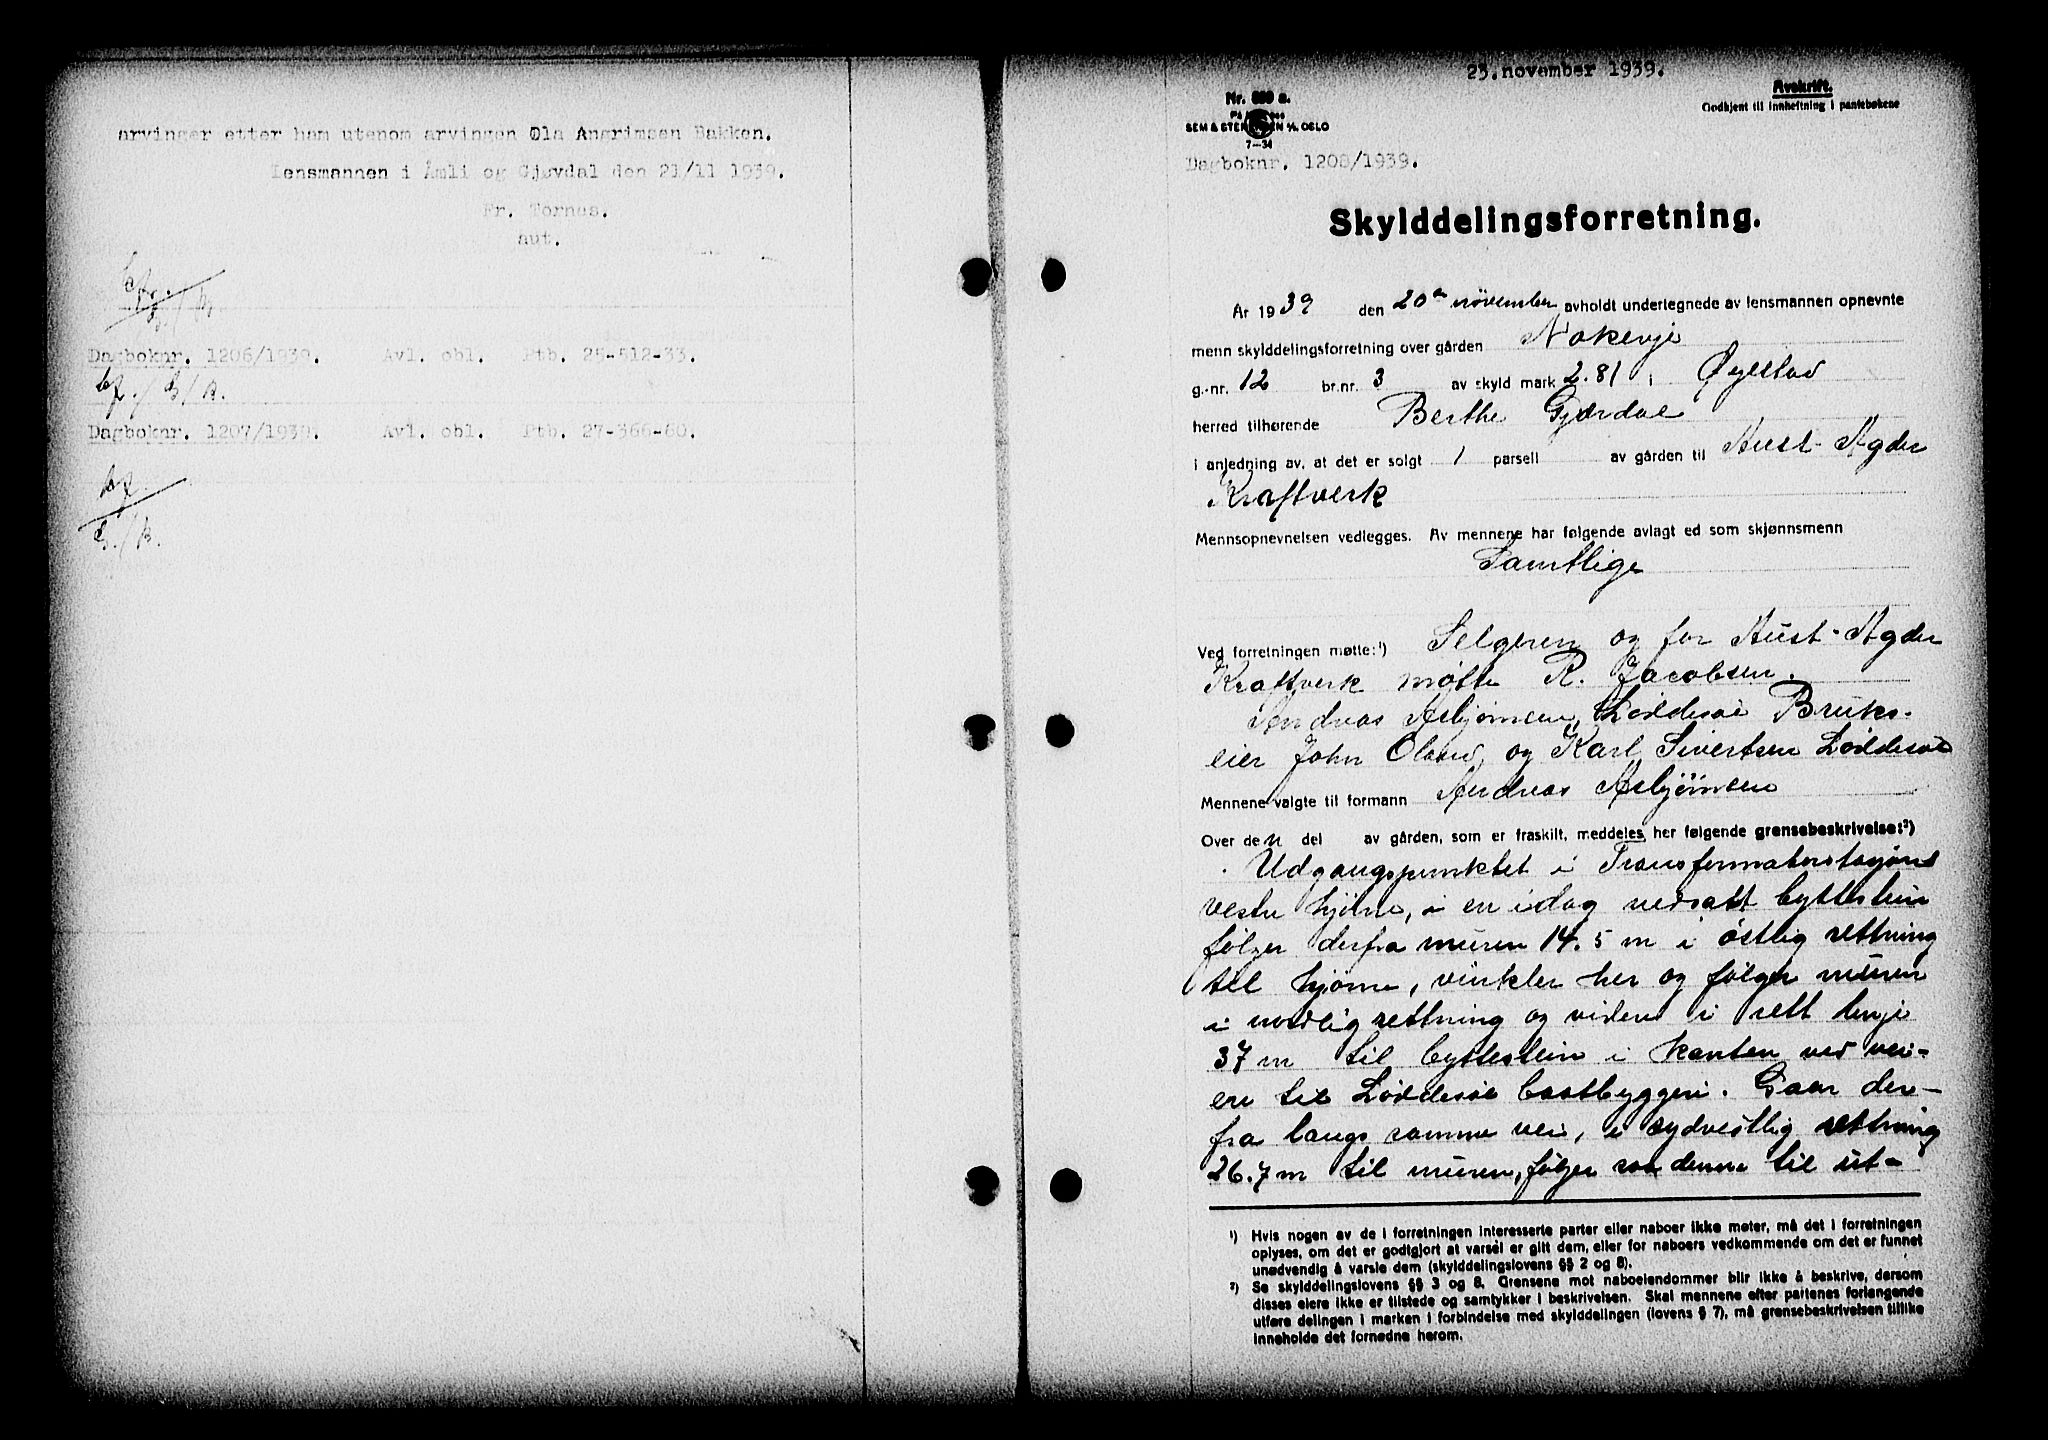 arvinger etter ham utenom arvingen Ola Angrimsen Bakken.
Lensmannen i Åmli og Gjøvdal den 21/11 1939.
Fr. Tornes.
aut.
Dagboknr. 1206/1939. Avl. obl. Ptb. 25-512-33.
Dagboknr. 1207/1939. Avl. obl. Ptb. 27-366-60.
23. november 1939.
Avskrift.
Nr. 899 a.
Godkjent til innheftning i pantebøkene
SEM & STENERSEN A/S OSLO
7—34
Dagboknr. 1208/1939.
Skylddelingsforretning.
År 1939 den 20de november avholdt undertegnede av lensmannen opnevnte
menn skylddelingsforretning over gården Nakenje
g.-nr. 12 br.nr. 3 av skyld mark 2.81 i Øyestad
herred tilhørende Berthe Gjærdal
i anledning av, at det er solgt 1 parsell av gården til Aust-Agder
Kraftverk
Mennsopnevnelsen vedlegges. Av mennene har følgende avlagt ed som skjønnsmenn
Samtlige
Ved forretningen møtte:¹) Selgeren og for Aust-Agder
Kraftverk møtte R. Jacobsen.
Andreas Asbjørnsen, Løddesøl Bruks-
eier John Oland, og Karl Sivertsen Løddesøl
Mennene valgte til formann Andreas Asbjørnsen
Over den del av gården, som er fraskilt, meddeles her følgende grensebeskrivelse:²)
Udgangspunktet i Transformatorstasjons
vestre hjørne, i en idag nedsatt byttestein
følger derfra muren 14.5 m i østlig rettning
til hjørne, vinkler her og følger muren
i nordlig rettning og videre i rett linje
37 m til byttestein i kanten ved vei-
en til Løddesøl baatbyggeri. Gaar der-
fra langs samme vei, i sydvestlig rettning
26.7 m til muren, følger saa denne til ut-
¹) Hvis nogen av de i forretningen interesserte parter eller naboer ikke møter, må det i forretningen
oplyses, om det er godtgjort at varsel er gitt dem, eller for naboers vedkommende om det er funnet
unødvendig å varsle dem (skylddelingslovens §§ 2 og 8).
²) Se skylddelingslovens §§ 3 og 8. Grensene mot naboeiendommer blir ikke å beskrive, dersom
disses eiere ikke er tilstede og samtykker i beskrivelsen. Skal mennene efter partenes forlangende
utføre delingen i marken i forbindelse med skylddelingen (lovens § 7), må grensebeskrivelsen tillike
inneholde det fornødne herom.